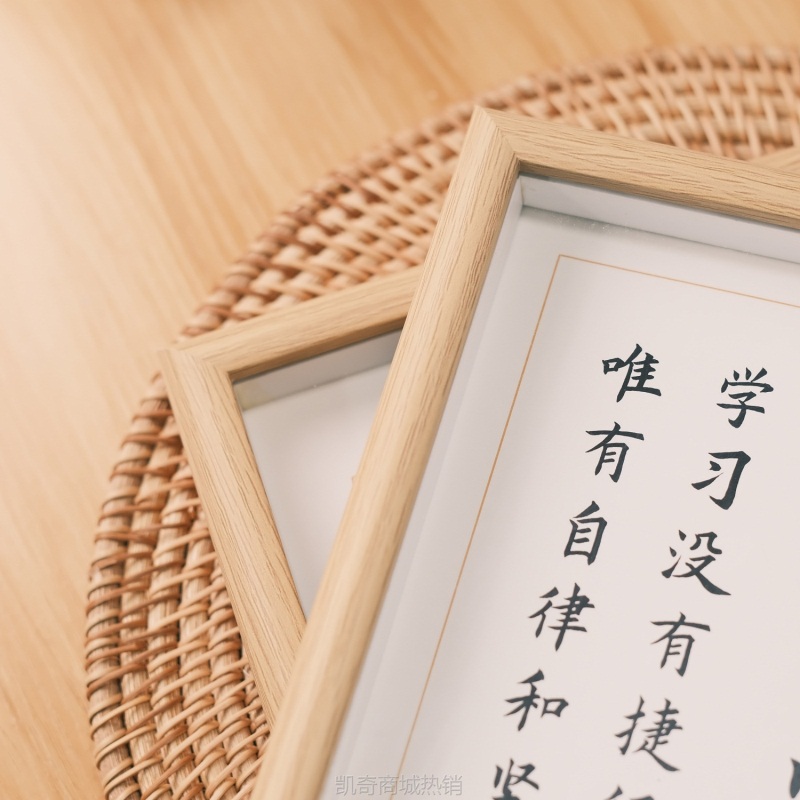 学习没有捷
唯有自律和坚
凯奇商城热销